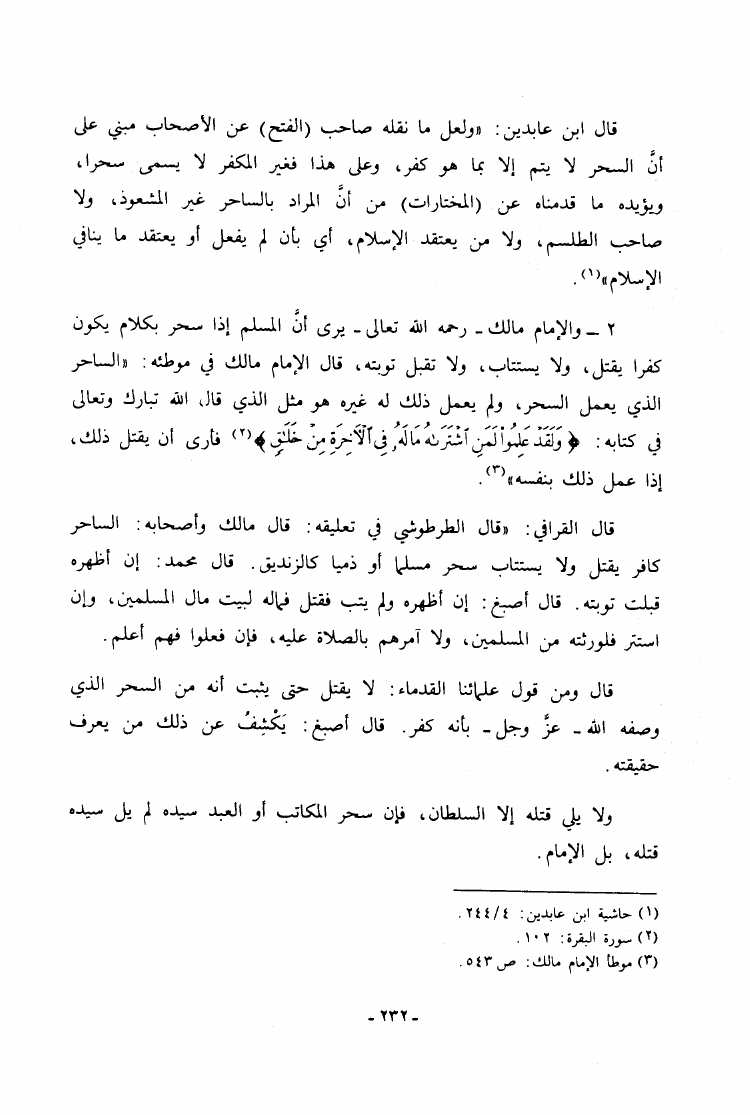 قال ابن عابدين: «ولعل ما نقله صاحب (الفتح) عن الأصحاب مبني على
أنَّ السحر لا يتم إلا بما هو كفر، وعلى هذا فغير المكفر لا يسمى سحرا،
ويؤيده ما قدمناه عن (المختارات) من أنَّ المراد بالساحر غير المشعوذ، ولا
صاحب الطلسم، ولا من يعتقد الإسلام، أي بأن لم يفعل أو يعتقد ما ينافي
الإسلام»(١).
٢ ــ والإمام مالك ـ رحمه الله تعالى ـ يرى أنَّ المسلم إذا سحر بكلام يكون
كفرا يقتل، ولا يستتاب، ولا تقبل توبته، قال الإمام مالك في موطئه: «الساحر
الذي يعمل السحر، ولم يعمل ذلك له غيره هو مثل الذي قال الله تبارك وتعالى
في كتابه: ﴿ وَلَقَدْ عَلِمُوا۟ لَمَنِ ٱشْتَرَىٰهُ مَالَهُۥ فِى ٱلْأَخِرَةِ مِنْ خَلَٰقٍ ﴾(٢) فأرى أن يقتل ذلك،
إذا عمل ذلك بنفسه»(٣).
قال القرافي: «قال الطرطوشي في تعليقه: قال مالك وأصحابه: الساحر
كافر يقتل ولا يستتاب سحر مسلما أو ذميا كالزنديق. قال محمد: إن أظهره
قبلت توبته. قال أصبغ: إن أظهره ولم يتب فقتل فماله لبيت مال المسلمين، وإن
استتر فلورثته من المسلمين، ولا آمرهم بالصلاة عليه، فإن فعلوا فهم أعلم.
قال ومن قول علمائنا القدماء: لا يقتل حتى يثبت أنه من السحر الذي
وصفه الله ـ عزَّ وجل ـ بأنه كفر. قال أصبغ: يَكْشِفُ عن ذلك من يعرف
حقيقته.
ولا يلي قتله إلا السلطان، فإن سحر المكاتب أو العبد سيده لم يل سيده
قتله، بل الإمام.
(١) حاشية ابن عابدين: ٢٤٤/٤.
(٢) سورة البقرة: ١٠٢.
(٣) موطأ الإمام مالك: ص ٥٤٣.
ـ ٢٣٢ ـ